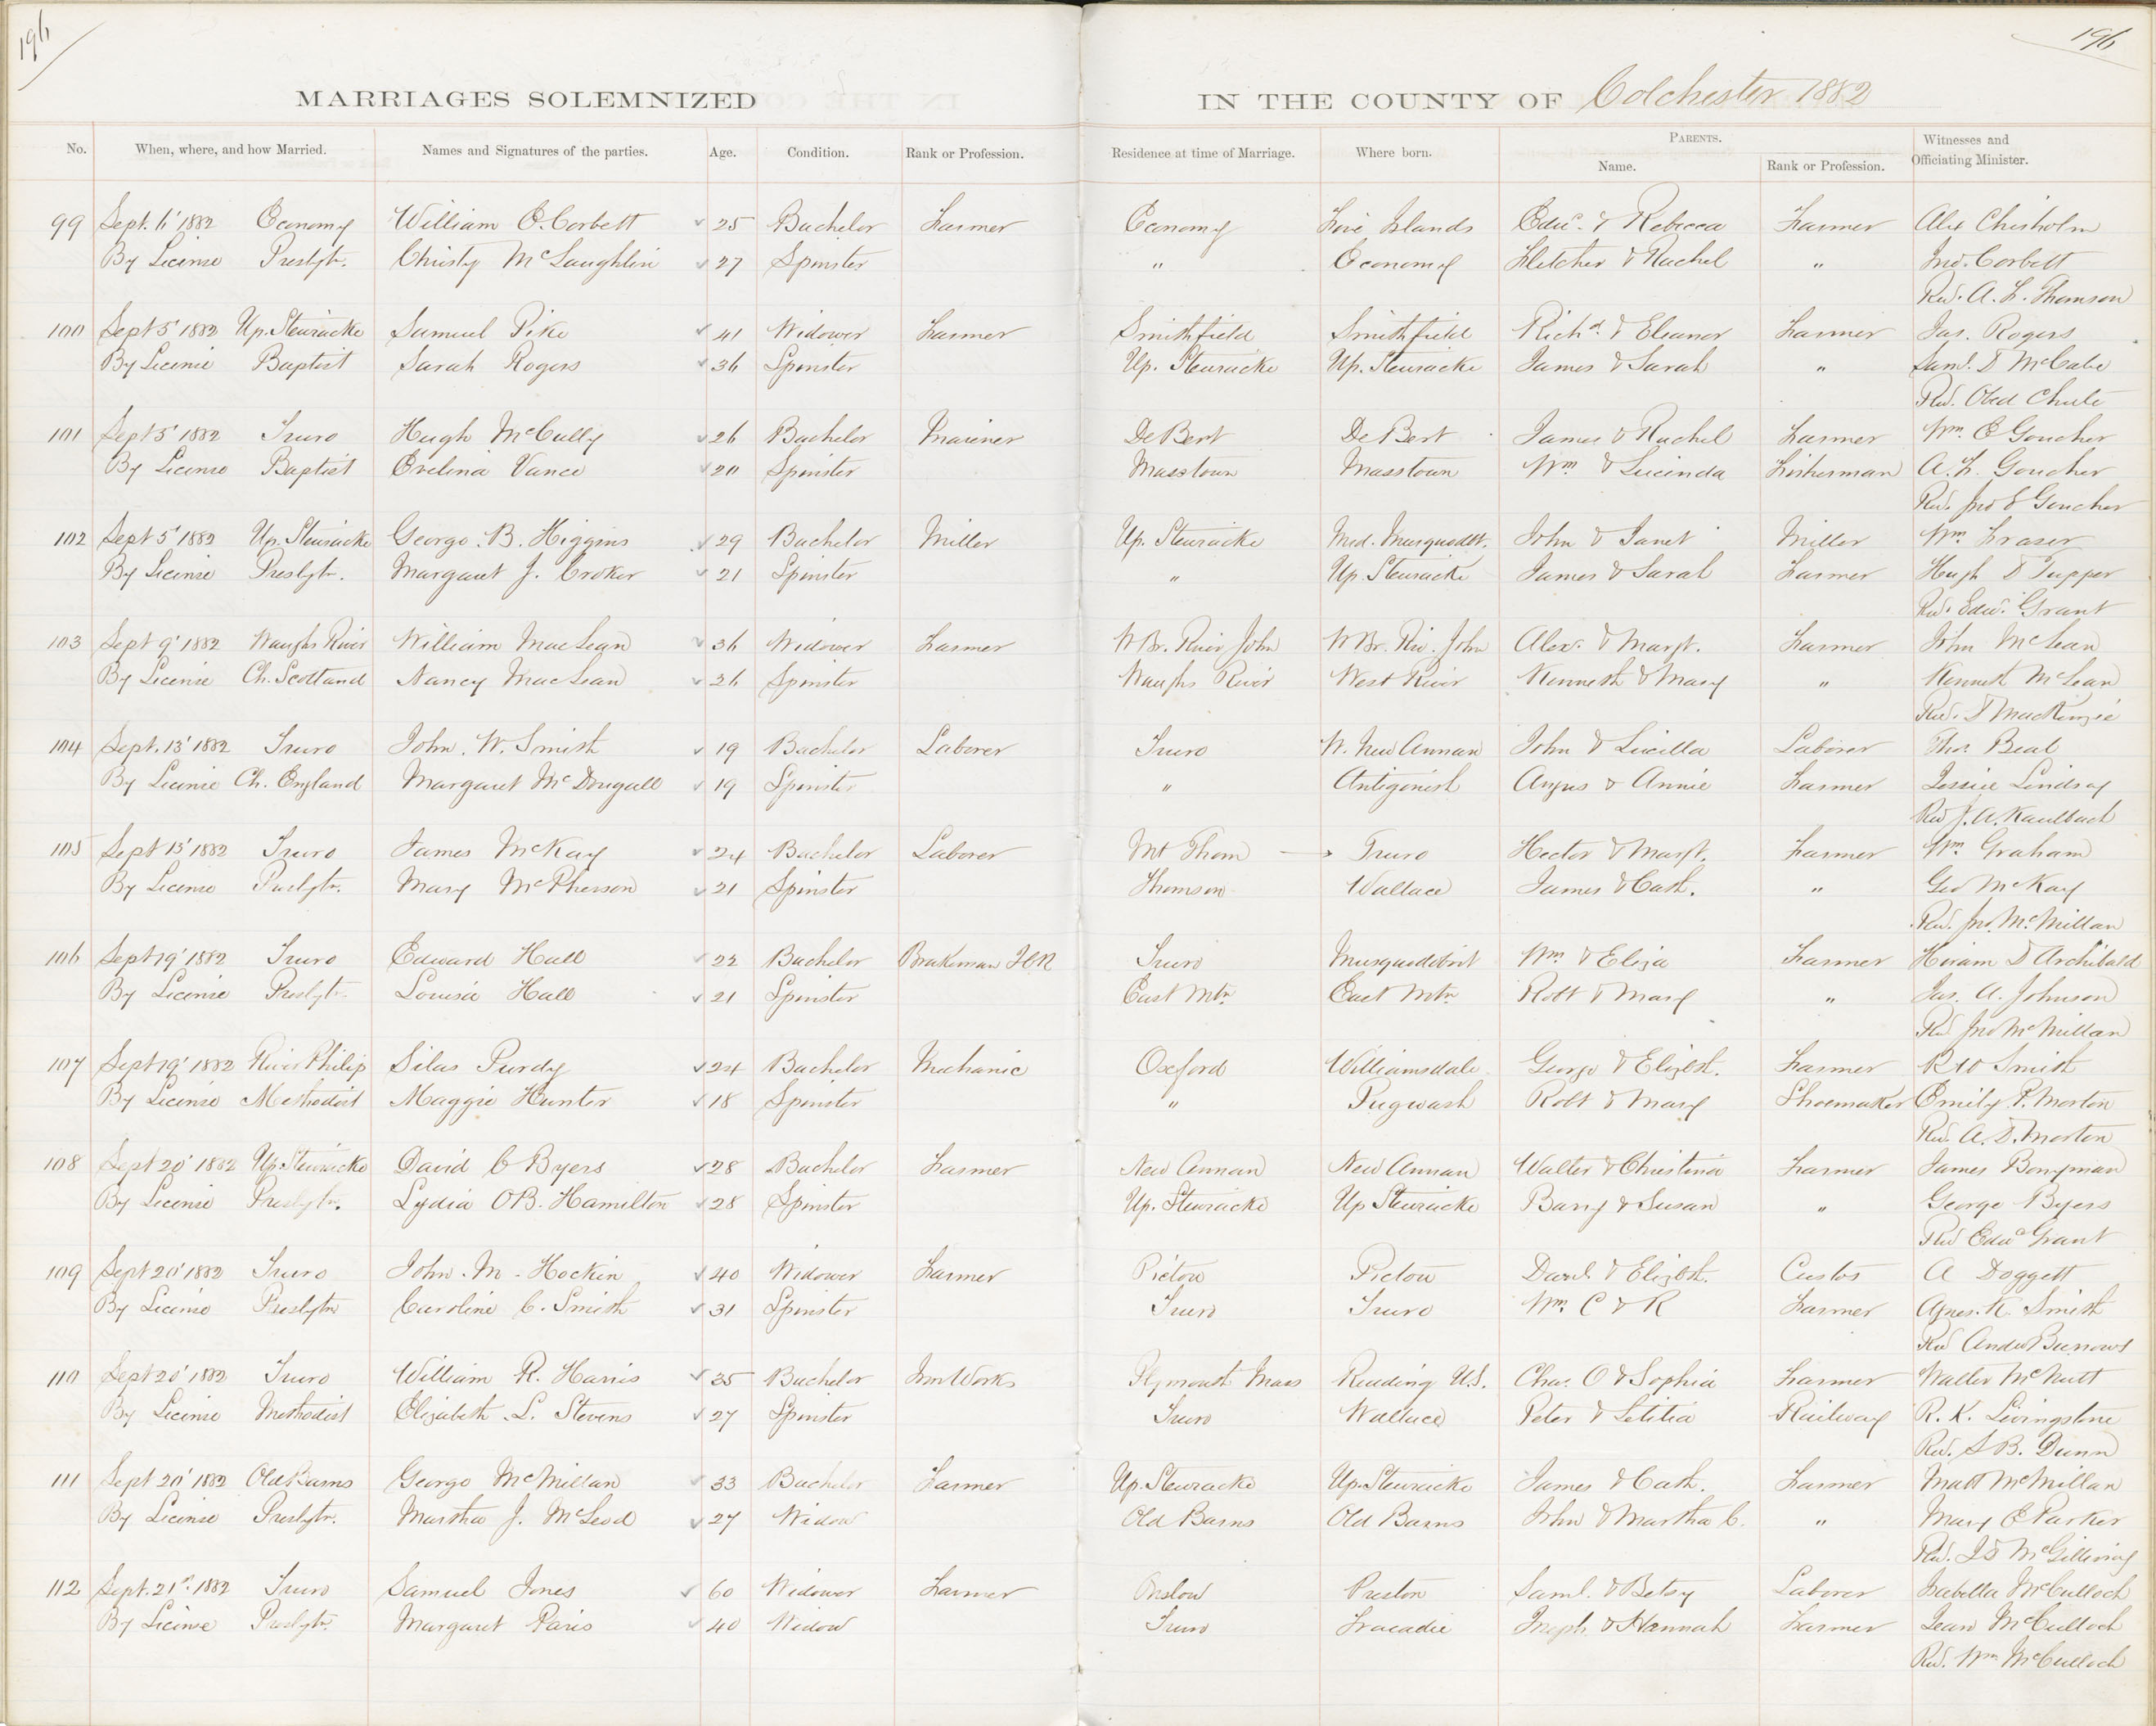 196
196
MARRIAGES SOLEMNIZED IN THE COUNTY OF Colchester 1882
No. When, where, and how Married. Names and Signatures of the parties. Age. Condition. Rank or Profession. Residence at time of Marriage. Where born. PARENTS. Name. Rank or Profession. Witnesses and Officiating Minister.
99 Sept. 6' 1882 Economy William E. Corbett 25 Bachelor Farmer Economy Five Islands Edwd. & Rebecca Farmer Alex Chisholm
By License Presbytr. Christy McLaughlin 27 Spinster " Economy Fletcher & Rachel " Jno. Corbett
Rev. A. F. Thomson
100 Sept 5' 1882 Up. Stewiacke Samuel Pike 41 Widower Farmer Smithfield Smithfield Richd. & Eleanor Farmer Jas. Rogers
By License Baptist Sarah Rogers 36 Spinster Up. Stewiacke Up. Stewiacke James & Sarah " Saml. D McCabe
Rev. Obed Chute
101 Sept 5' 1882 Truro Hugh McCully 26 Bachelor Mariner DeBert DeBert James & Rachel Farmer Wm. E Goucher
By License Baptist Evelina Vance 20 Spinster Masstown Masstown Wm & Lucinda Fisherman A. F. Goucher
Rev. Jno E Goucher
102 Sept 5' 1882 Up. Stewiacke George. B. Higgins 29 Bachelor Miller Up. Stewiacke Mid. Musquodt. John & Janet Miller Wm Fraser
By License Presbytr. Margaret J. Croker 21 Spinster " Up. Stewiacke James & Sarah Farmer Hugh D Tupper
Rev. Edwd. Grant
103 Sept 9' 1882 Waughs River William MacLean 36 Widower Farmer W Br. River John W Br. Riv. John Alexr. & Margt. Farmer John McLean
By License Ch. Scotland Nancy MacLean 26 Spinster Waughs River West River Kenneth & Mary " Kenneth McLean
Rev. D MacKenzie
104 Sept. 13' 1882 Truro John. W. Smith 19 Bachelor Laborer Truro W. New Annan John & Lucilla Laborer Thos. Beal
By License Ch. England Margaret McDougall 19 Spinster " Antigonish Angus & Annie Farmer Jessie Lindsay
Rev J. A. Kaulbach
105 Sept 13' 1882 Truro James McKay 24 Bachelor Laborer Mt Thom Truro Hector & Margt. Farmer Wm Graham
By License Presbytr. Mary McPherson 21 Spinster Thomson Wallace James & Cath. " Geo McKay
Rev. Jno. McMillan
106 Sept 19' 1882 Truro Edward Hall 22 Bachelor Brakeman ICR Truro Musquodoboit Wm & Eliza Farmer Hiram D Archibald
By License Presbytr. Louisa Hall 21 Spinster East Mtn East Mtn Robt & Mary " Jas. A. Johnson
Rev Jno McMillan
107 Sept 19' 1882 River Philip Silas Purdy 24 Bachelor Mechanic Oxford Williamsdale George & Elizbth. Farmer Smith
By License Methodist Maggie Hunter 18 Spinster " Pugwash Robt & Mary Shoemaker Emily P. Morton
Rev. A. D. Morton
108 Sept 20' 1882 Up. Stewiacke David C Byers 28 Bachelor Farmer New Annan New Annan Walter & Christina Farmer James Bonyman
By License Presbytr. Lydia OB. Hamilton 28 Spinster Up. Stewiacke Up Stewiacke Barry & Susan " George Byers
Rev Edwd Grant
109 Sept 20' 1882 Truro John. M. Hockin 40 Widower Farmer Pictou Pictou Danl. & Elizbth. Custos A Doggett
By License Presbytr Caroline C. Smith 31 Spinster Truro Truro Wm. C & R Farmer Agnes. K. Smith
Rev Andw Burrows
110 Sept 20' 1882 Truro William R. Harris 35 Bachelor Iron Works Plymouth Mass Reading U.S. Chas. O & Sophia Farmer Walter McNutt
By License Methodist Elizabeth L. Stevens 27 Spinster Truro Wallace Peter & Letitia Railway R. K. Livingstone
Rev. S B. Dunn
111 Sept 20' 1882 Old Barns George McMillan 33 Bachelor Farmer Up. Stewiacke Up. Stewiacke James & Cath. Farmer Matt McMillan
By License Presbytr. Martha J. McLeod 27 Widow Old Barns Old Barns John & Martha C. " Mary E Parker
Rev. McGillivray
112 Sept. 21st. 1882 Truro Samuel Jones 60 Widower Farmer Onslow Preston Saml. & Betsy Laborer Isabella McCulloch
By License Presbytr. Margaret Paris 40 Widow Truro Tracadie Joseph & Hannah Farmer Jean McCulloch
Rev. Wm McCulloch